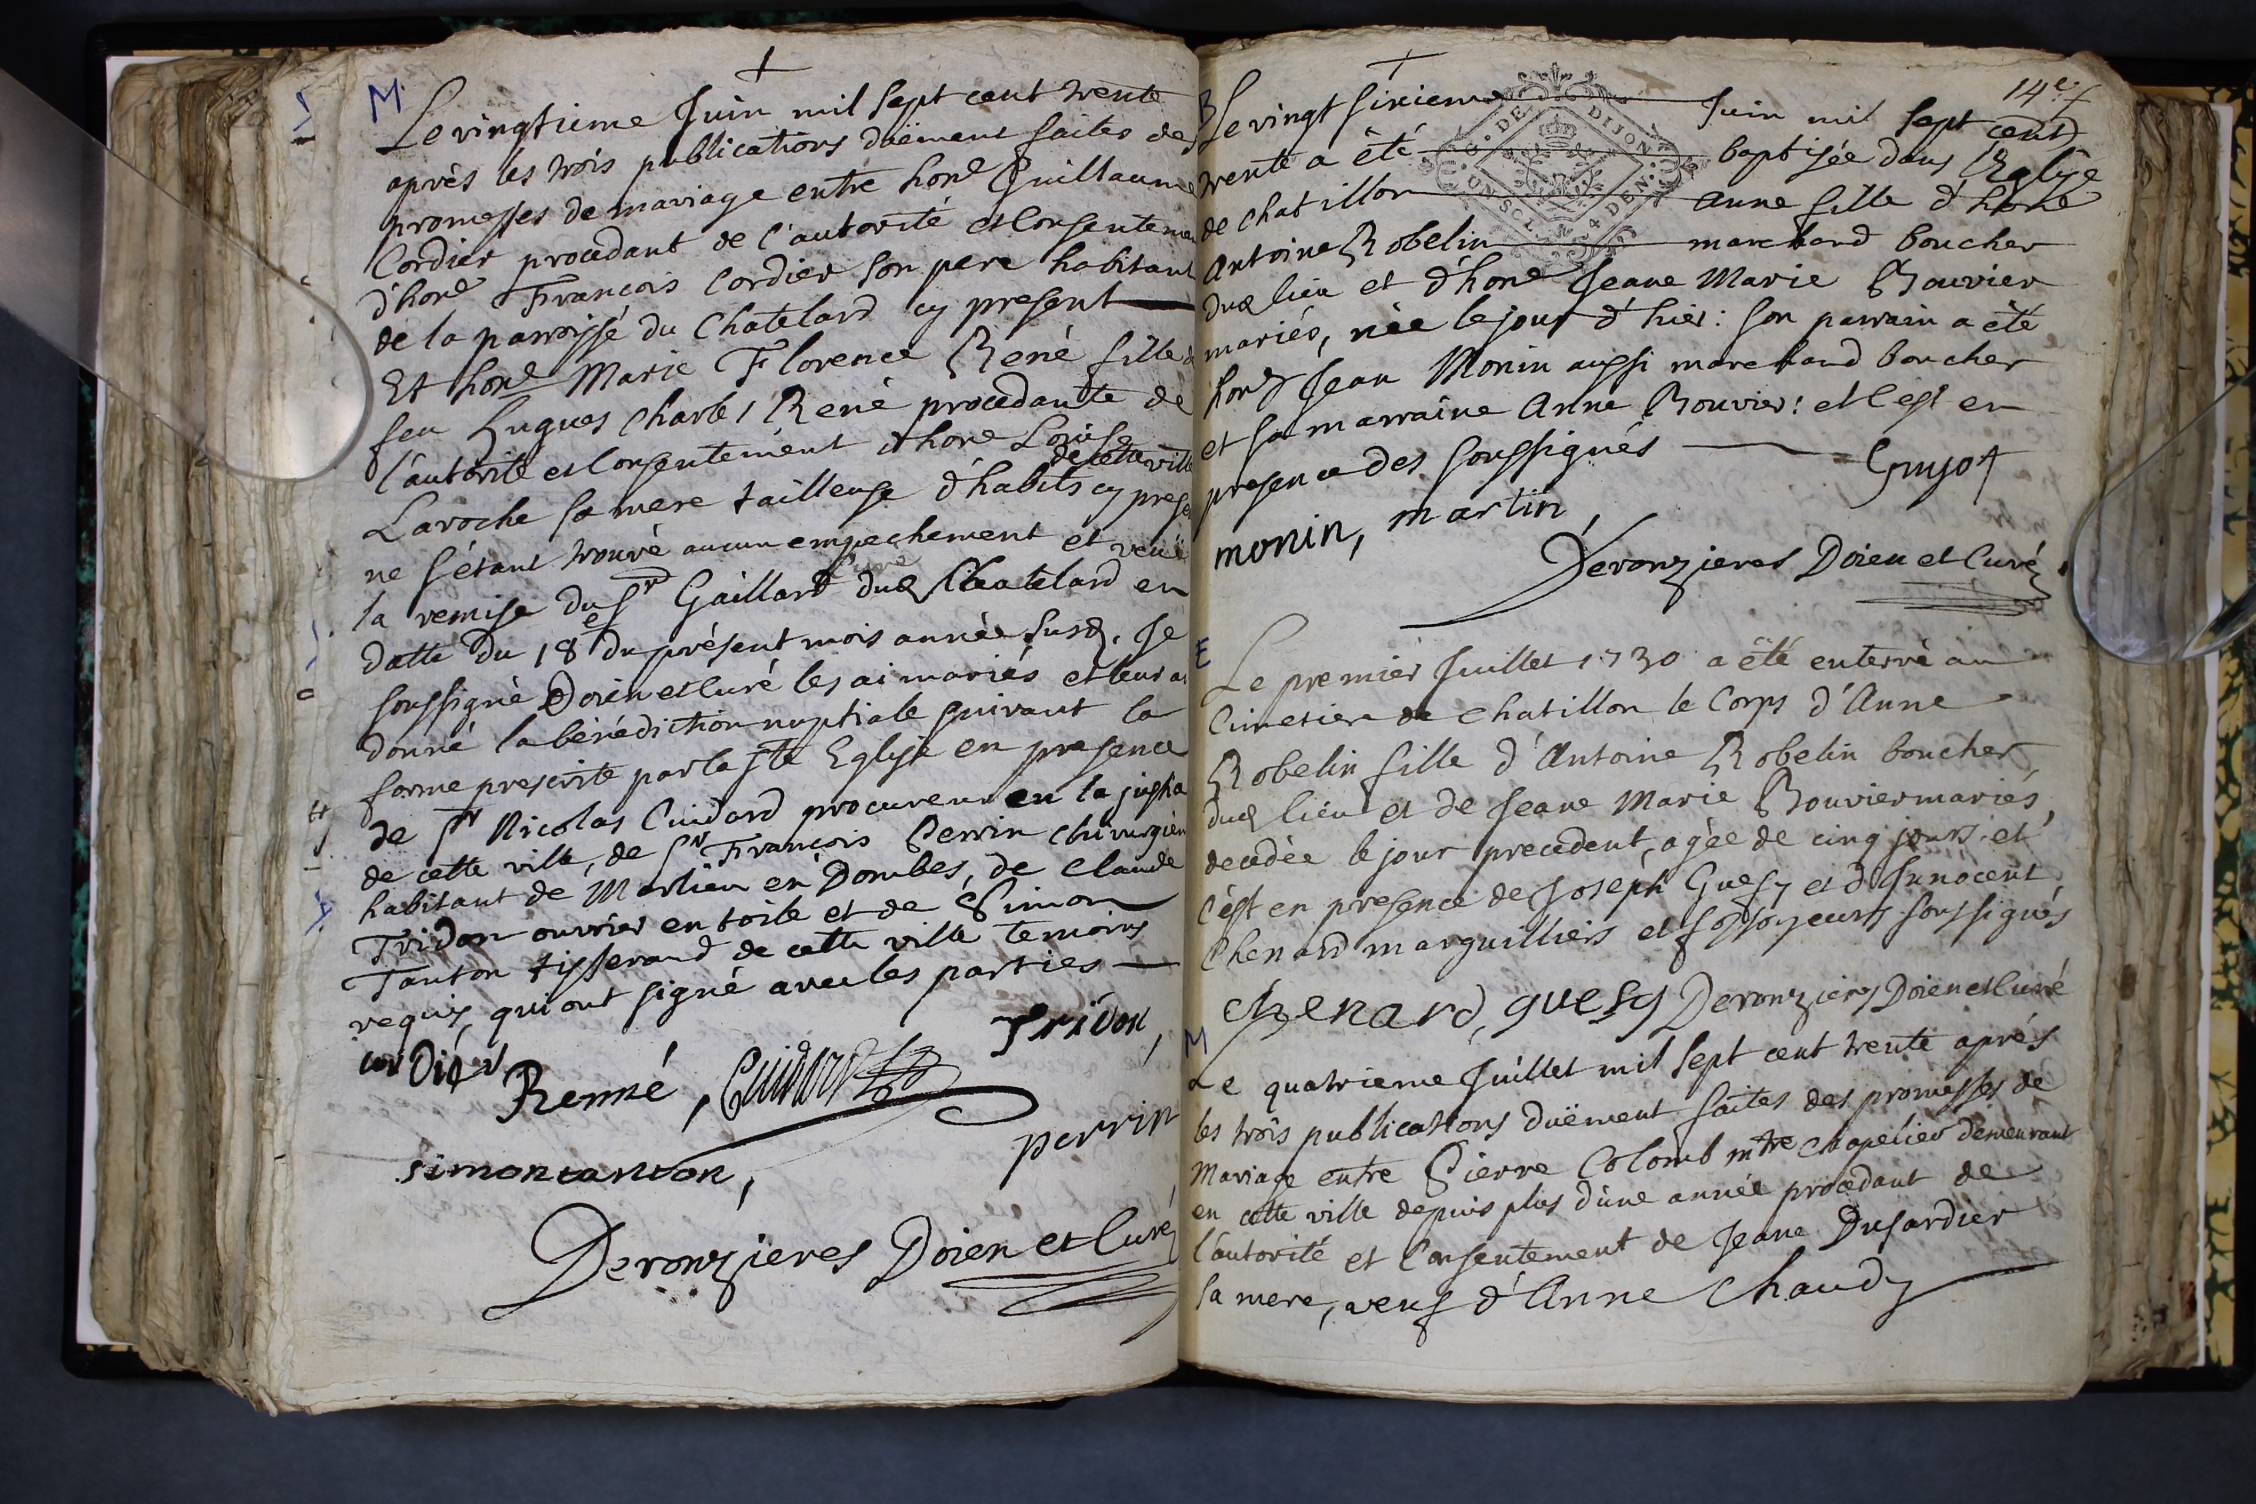 M
Le vingtieme Juin mil sept cent trente
après les trois publications düement faites des
promesses de mariage entre hone Guillaume
Cordier procedant de l'autorité et Consentemen
d'hone François Cordier son pere habitant
de la parroisse du Chatelard cy present
Et hone Marie Florence René fille de
feu Hugues Charle René procedante de
l'autorité et Consentement d'hone Loüise
de cette ville
Laroche sa mere tailleuse d'habits cy prese
ne s'étant trouvé aucun empechement et veüe
la remise du Sr Gaillard Curé dud Chatelard en
datte du 18e du présent mois année susd. Je
soussigné Doien et Curé les ai mariés et leur ai
donné la bénédiction nuptiale suivant la
forme prescrite par la Ste Eglise en presence
de Sr Nicolas Cuidard procureur en la justice
de cette ville, de Sr François Perrin chirurgien
habitant de Marlieu en Dombes, de Claude
Tridon ouvrier en toile et de Simon
Tanton tisserand de cette ville temoins
requis, qui ont signé avec les parties
cordier Renné, Cuidard Tridon,
perrin
simon tanton,
Deronzieres Doien et Curé
14e
B
Le vingt sixieme Juin mil sept cent
trente a été baptisée dans l'Eglise
de chatillon Anne fille d'hone
Antoine Robelin marchand boucher
dud lieu et d'hone Jeane Marie Bouvier
mariés, née le jour d'hier: son parrain a été
hone Jean Monin aussi marchand boucher
et sa marraine Anne Bouvier: et c'est en
presence des soussignés
Guyot
monin, martin
Deronzieres Doien et Curé
DE DIJON
4 DEN
E
Le premier Juillet 1730 a été enterré au
Cimetiere de Chatillon le Corps d'Anne
Robelin fille d'Antoine Robelin boucher
dud lieu et de Jeane Marie Bouvier mariés,
decedée le jour precedent, agée de cinq jours et
c'est en presence de Joseph Guesy et d'Innocent
Chenard marguilliers et fossoyeurs soussignés
chenard, guesy Deronzieres Doien et Curé
M
Le quatrieme Juillet mil sept cent trente aprés
les trois publications düement faites des promesses de
Mariage entre Pierre Colomb mtre Chapelier demeurant
en cette ville depuis plus d'une année procedant de
l'autorité et Consentement de Jeane Dusardier
sa mere, veuf d'Anne Chaudy